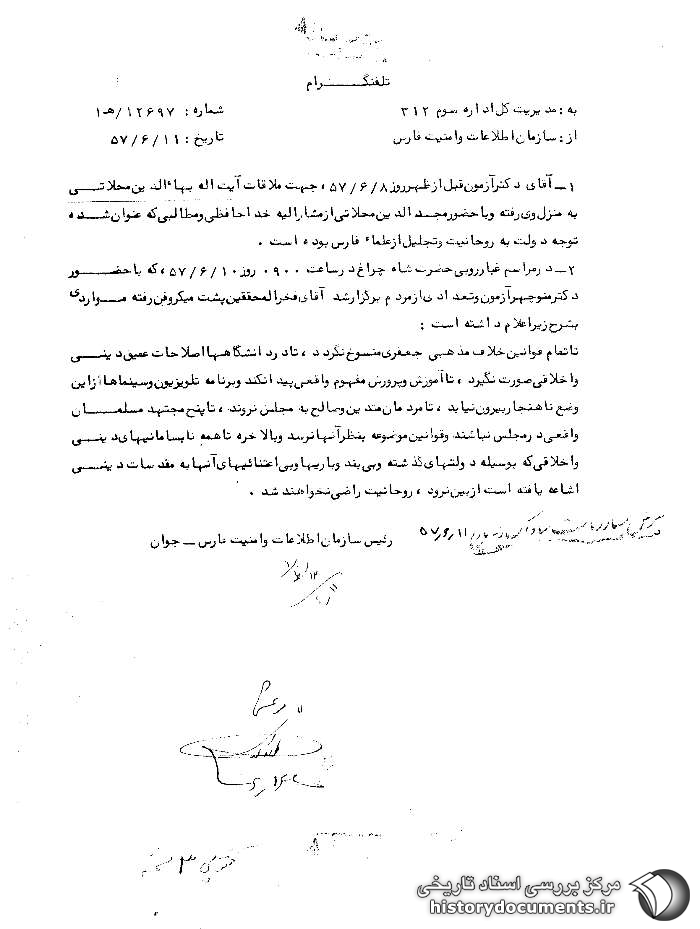 تلفنگــــرام
به : مدیریت کل اداره سوم ۳۱۲
شماره : ۱۲۶۹۷ / هـ ۱
از : سازمان اطلاعات و امنیت فارس
تاریخ : ۵۷/۶/۱۱
۱ــ آقای دکتر آزمون قبل از ظهر روز ۵۷/۶/۸ ، جهت ملاقات آیت اله بهاءالدین محلاتــی
به منزل وی رفته و با حضور مجدالدین محلاتی از مشارالیه خداحافظی و مطالبی که عنوان شــده
توجه دولت به روحانیت و تجلیل از علماء فارس بوده است .
۲ــ در مراسم غبارروبی حضرت شاه چراغ در ساعت ۰۹۰۰ روز ۵۷/۶/۱۰ ، که با حضــور
دکتر منوچهر آزمون و تعدادی از مردم برگزار شد آقای فخرالمحققین پشت میکروفن رفته مــواردی
بشرح زیر اعلام داشته است :
تا تمام قوانین خلاف مذهبی جعفری منسوخ نگردد ، تا در دانشگاهها اصلاحات عمیق دینــی
و اخلاقی صورت نگیرد ، تا آموزش و پرورش مفهوم واقعی پیدا نکند و برنامه تلویزیون و سینماها از این
وضع ناهنجار بیرون نیاید ، تا مردمان متدین و صالح به مجلس نروند ، تا پنج مجتهد مسلمــان
واقعی در مجلس نباشند و قوانین موضوعه بنظر آنها نرسد و بالاخره تا همه نابسامانیهای دینــی
و اخلاقی که بوسیله دولتهای گذشته و بی بند و باریها و بی اعتنائیهای آنها به مقدسات دینــی
اشاعه یافته است از بین نرود ، روحانیت راضی نخواهند شد .
۵۷/۶/۱۱
رئیس سازمان اطلاعات و امنیت فارس ــ جوان
مرکز بررسی اسناد تاریخی
historydocuments.ir